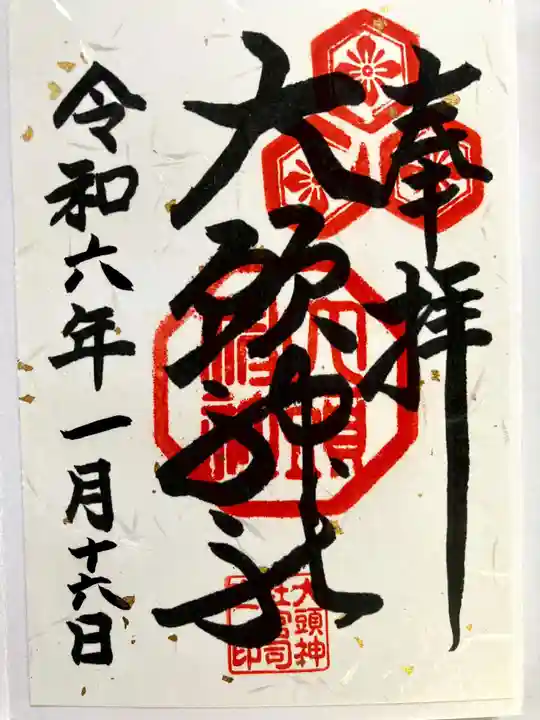 奉拝
大頭神社
令和六年一月十六日
大頭
神社
大頭神
社宮司
之印